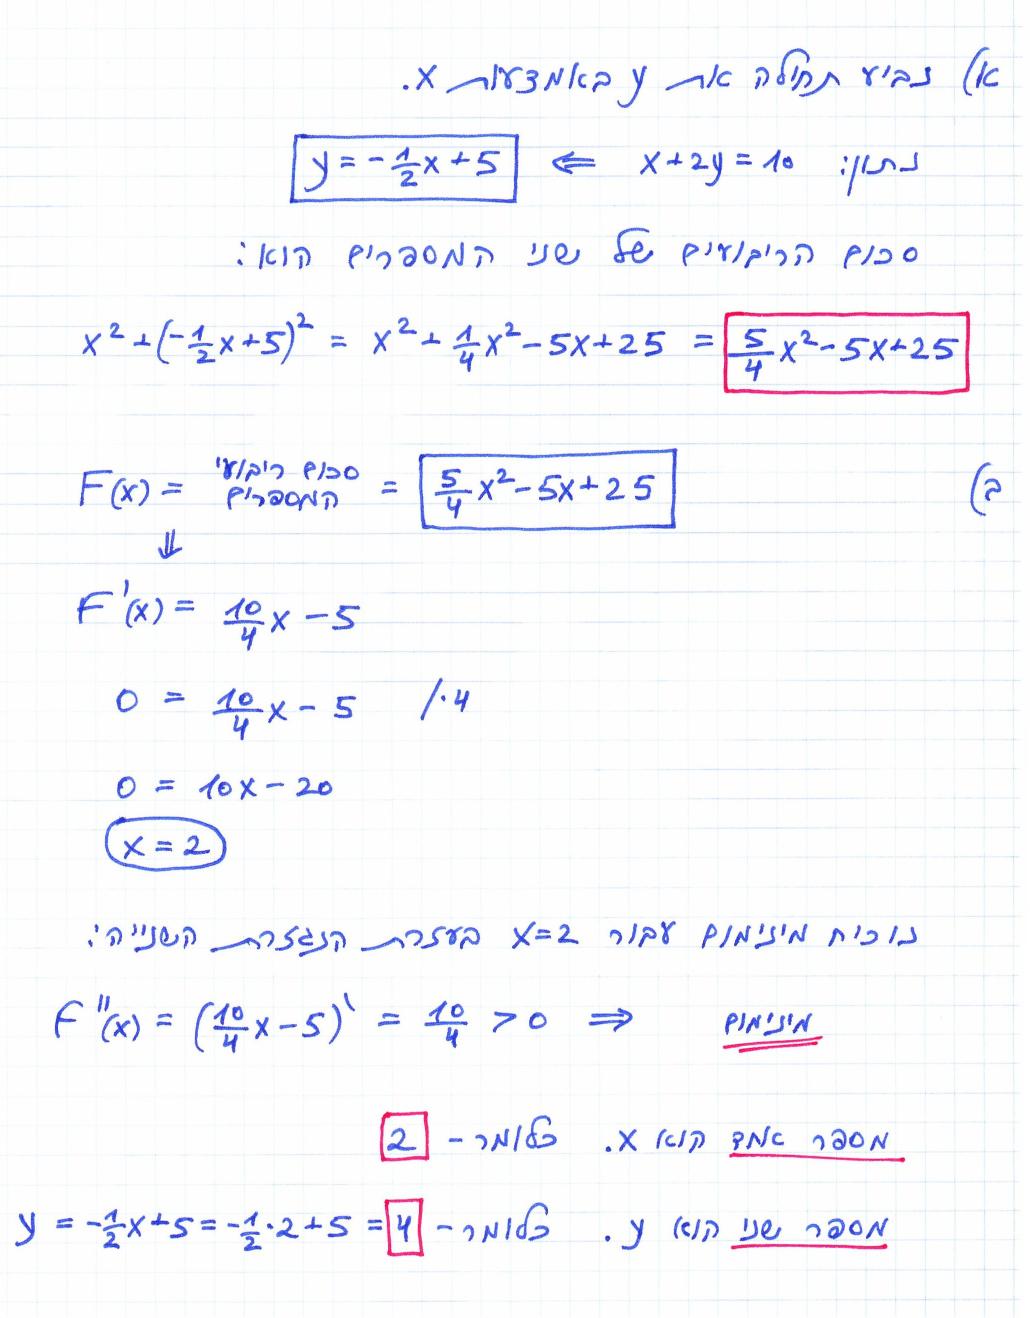 א) נביע תחילה את y באמצעות x.
נתון: x+2y=10 ⇐ y=-1/2x+5
סכום הריבועים של שני המספרים הוא:
x²+(-1/2x+5)² = x²+1/4x²-5x+25 = 5/4x²-5x+25
ב) F(x) = סכום ריבועי המספרים = 5/4x²-5x+25
⇓
F'(x) = 10/4x-5
0 = 10/4x-5 /·4
0 = 10x-20
x=2
נוכיח מינימום עבור x=2 בעזרת הנגזרת השנייה:
F"(x) = (10/4x-5)' = 10/4 > 0 ⇒ מינימום
מספר אחד הוא x. כלומר - 2
מספר שני הוא y. כלומר - y = -1/2x+5 = -1/2·2+5 = 4